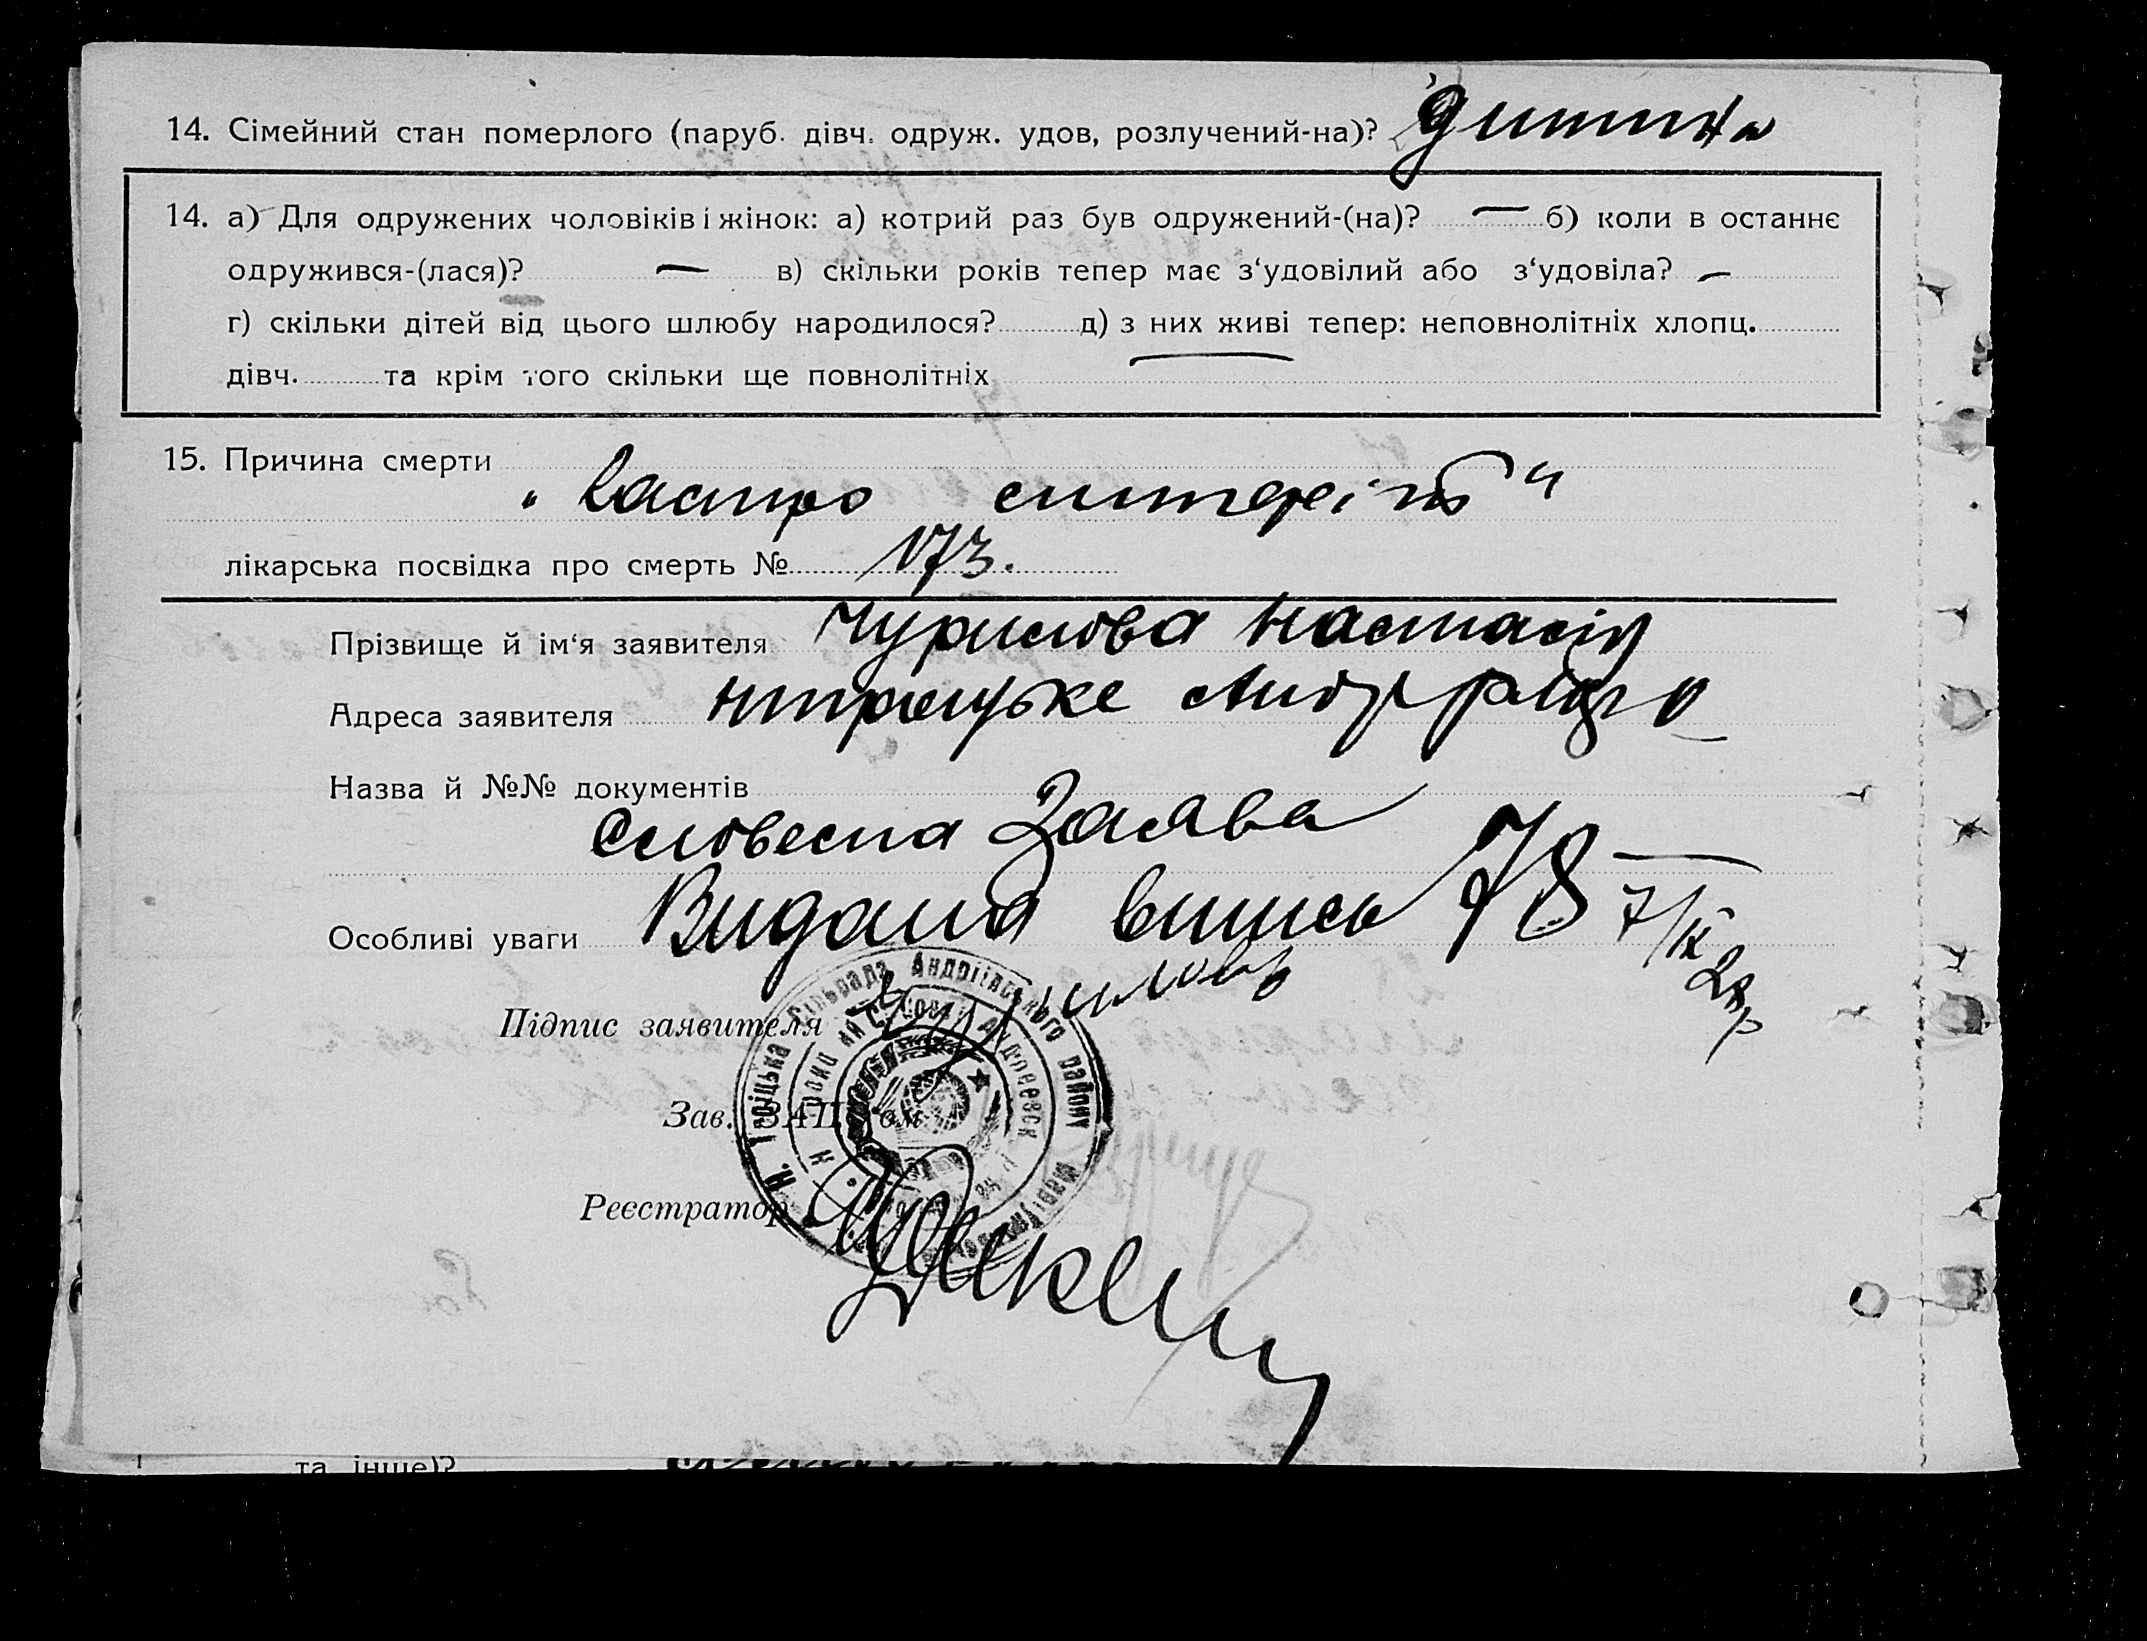 14. Сімейний стан померлого (паруб. дівч. одруж. удов, розлучений-на)? дитина
14. а) Для одружених чоловіків і жінок: а) котрий раз був одружений-(на)? — б) коли в останнє
одружився-(лася)? — в) скільки років тепер має з‘удовілий або з‘удовіла? —
г) скільки дітей від цього шлюбу народилося? д) з них живі тепер: неповнолітніх хлопц.
дівч. та крім того скільки ще повнолітніх —
15. Причина смерти
„Гастро ентеріт“
лікарська посвідка про смерть № 173.
Прізвище й ім‘я заявителя Чурилова Настасія
Адреса заявителя Нтроіцьке
Назва й №№ документів
Словесна Заява
Особливі уваги Видана випись 78 7/IX
Підпис заявителя
Н. Троїцька Сільрада Андріївського району
Зав. ЗАЦ‘ом
Реєстратор
та інше)?